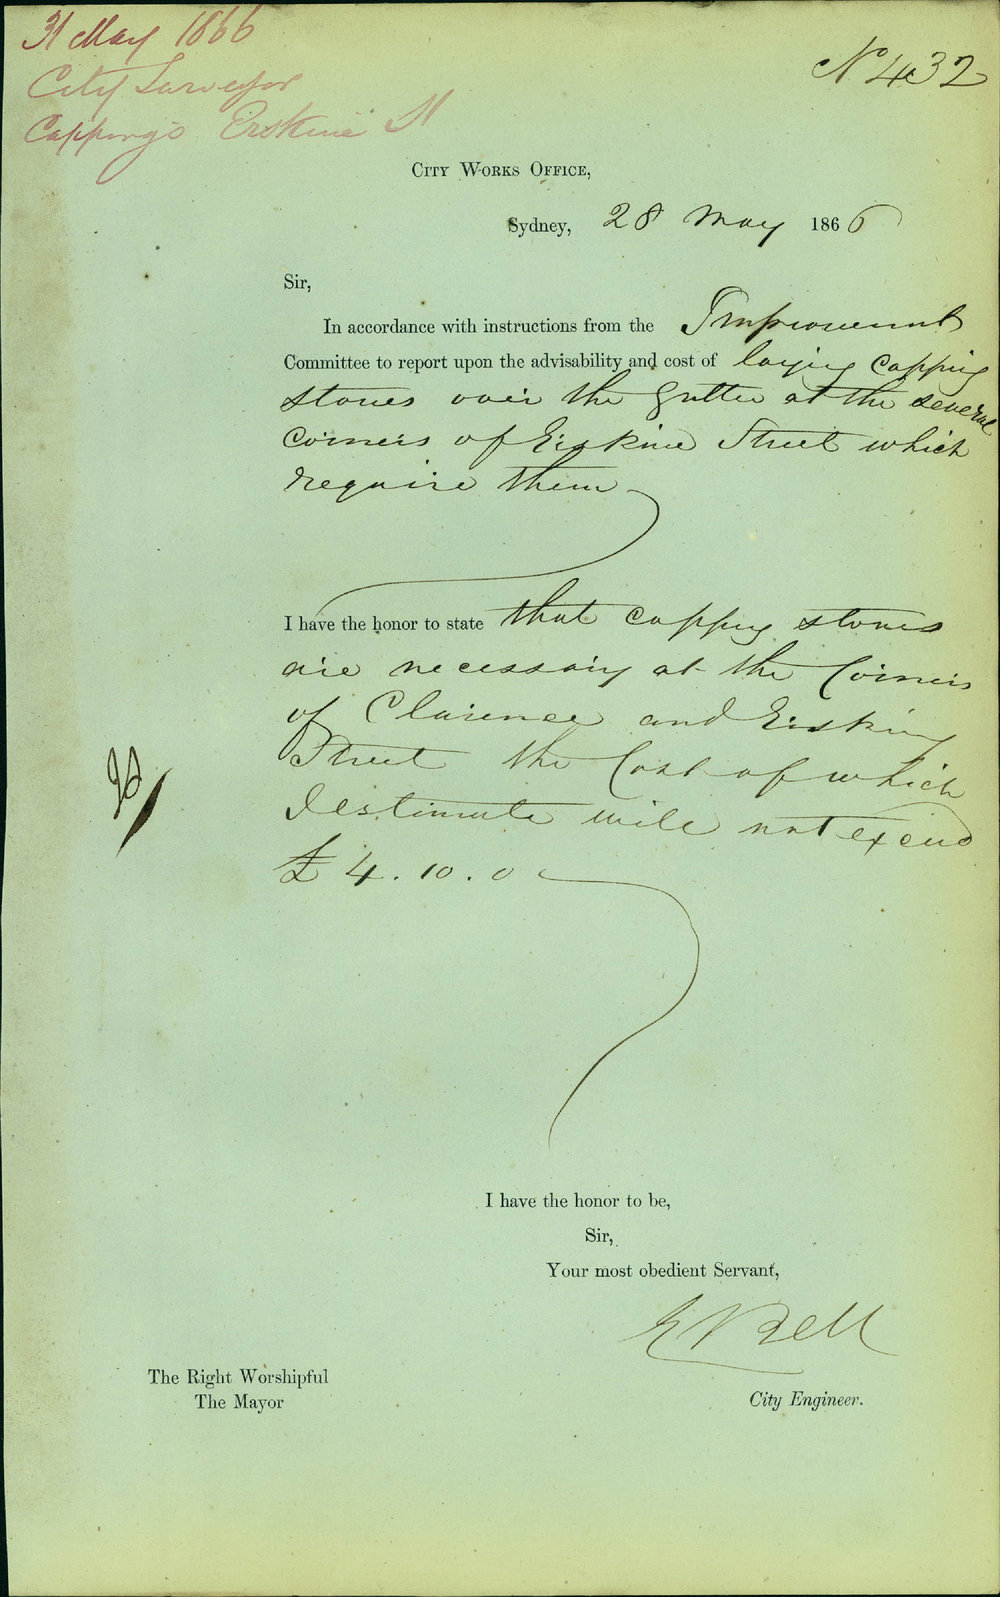 31 May 1866
City Surveyor
Cappings Erskine St
No 432
City Works Office,
Sydney, 28 May 1866
Sir,
In accordance with instructions from the Improvement
Committee to report upon the advisability and cost of laying capping
stones over the Gutter at the several
corners of Erskine Street which
require them
I have the honor to state that capping stones
are necessary at the Corners
of Clarence and Erskine
Street the Cost of which
I estimate will not exceed
£4.10.0
I have the honor to be,
Sir,
Your most obedient Servant,
E Bell
The Right Worshipful
The Mayor
City Engineer.